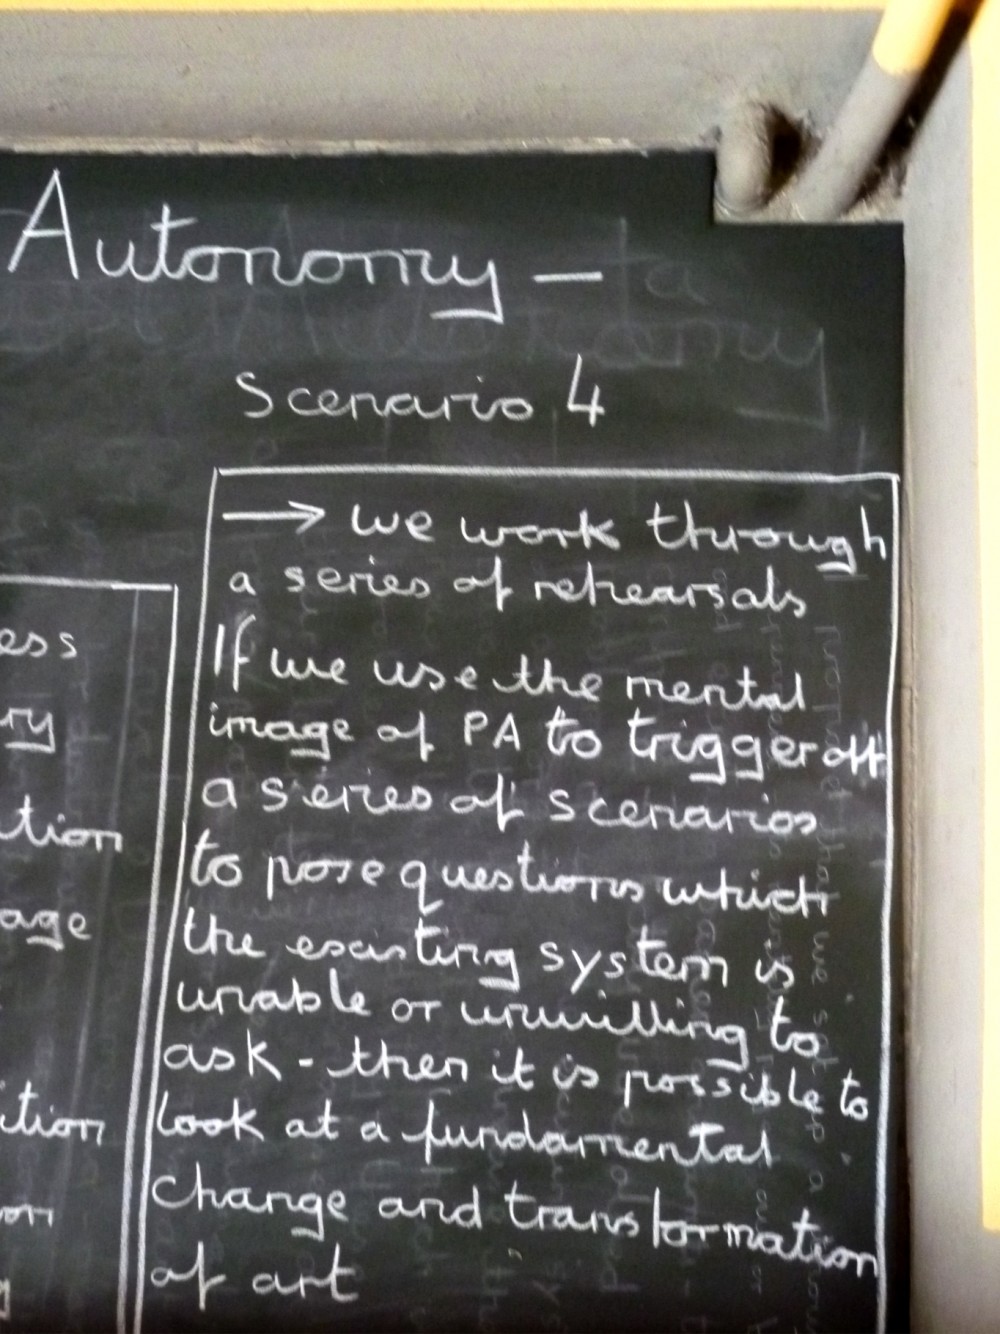 Autonomy —
Scenario 4
→ we work through
a series of rehearsals
If we use the mental
image of PA to trigger off
a series of scenarios
to pose questions which
the existing system is
unable or unwilling to
ask - then it is possible to
look at a fundamental
change and transformation
of art
ess
ry
ition
age
ition
on
g